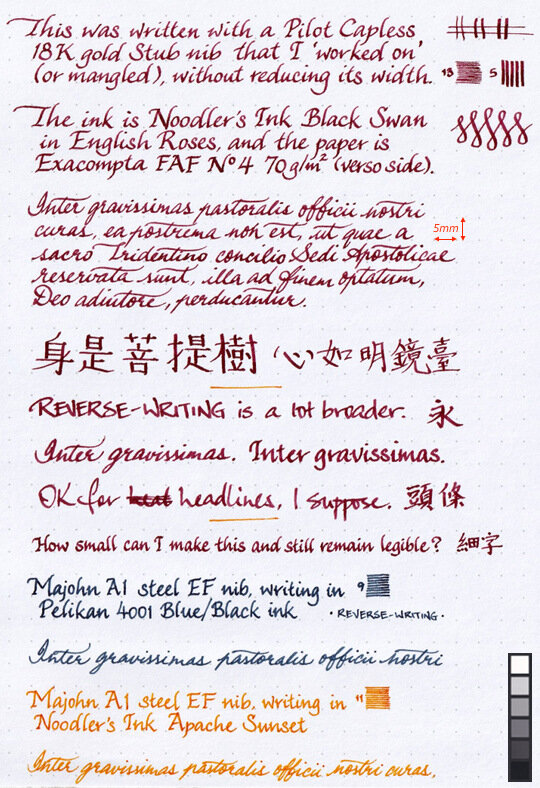 This was written with a Pilot Capless
18K gold Stub nib that I 'worked on'
(or mangled), without reducing its width.
13 5
The ink is Noodler's Ink Black Swan
in English Roses, and the paper is
Exacompta FAF Nº4 70g/m² (verso side).
Inter gravissimas pastoralis officii nostri
curas, ea postrema non est, ut quae a
5mm
sacro Tridentino concilio Sedi Apostolicae
reservata sunt, illa ad finem optatum,
Deo adiutore, perducantur.
身是菩提樹 心如明鏡臺
REVERSE-WRITING is a lot broader. 永
Inter gravissimas. Inter gravissimas.
OK for headlines, I suppose. 頭條
How small can I make this and still remain legible? 細字
Majohn A1 steel EF nib, writing in 9
Pelikan 4001 Blue/Black ink ·REVERSE-WRITING·
Inter gravissimas pastoralis officii nostri
Majohn A1 steel EF nib, writing in 11
Noodler's Ink Apache Sunset
Inter gravissimas pastoralis officii nostri curas,